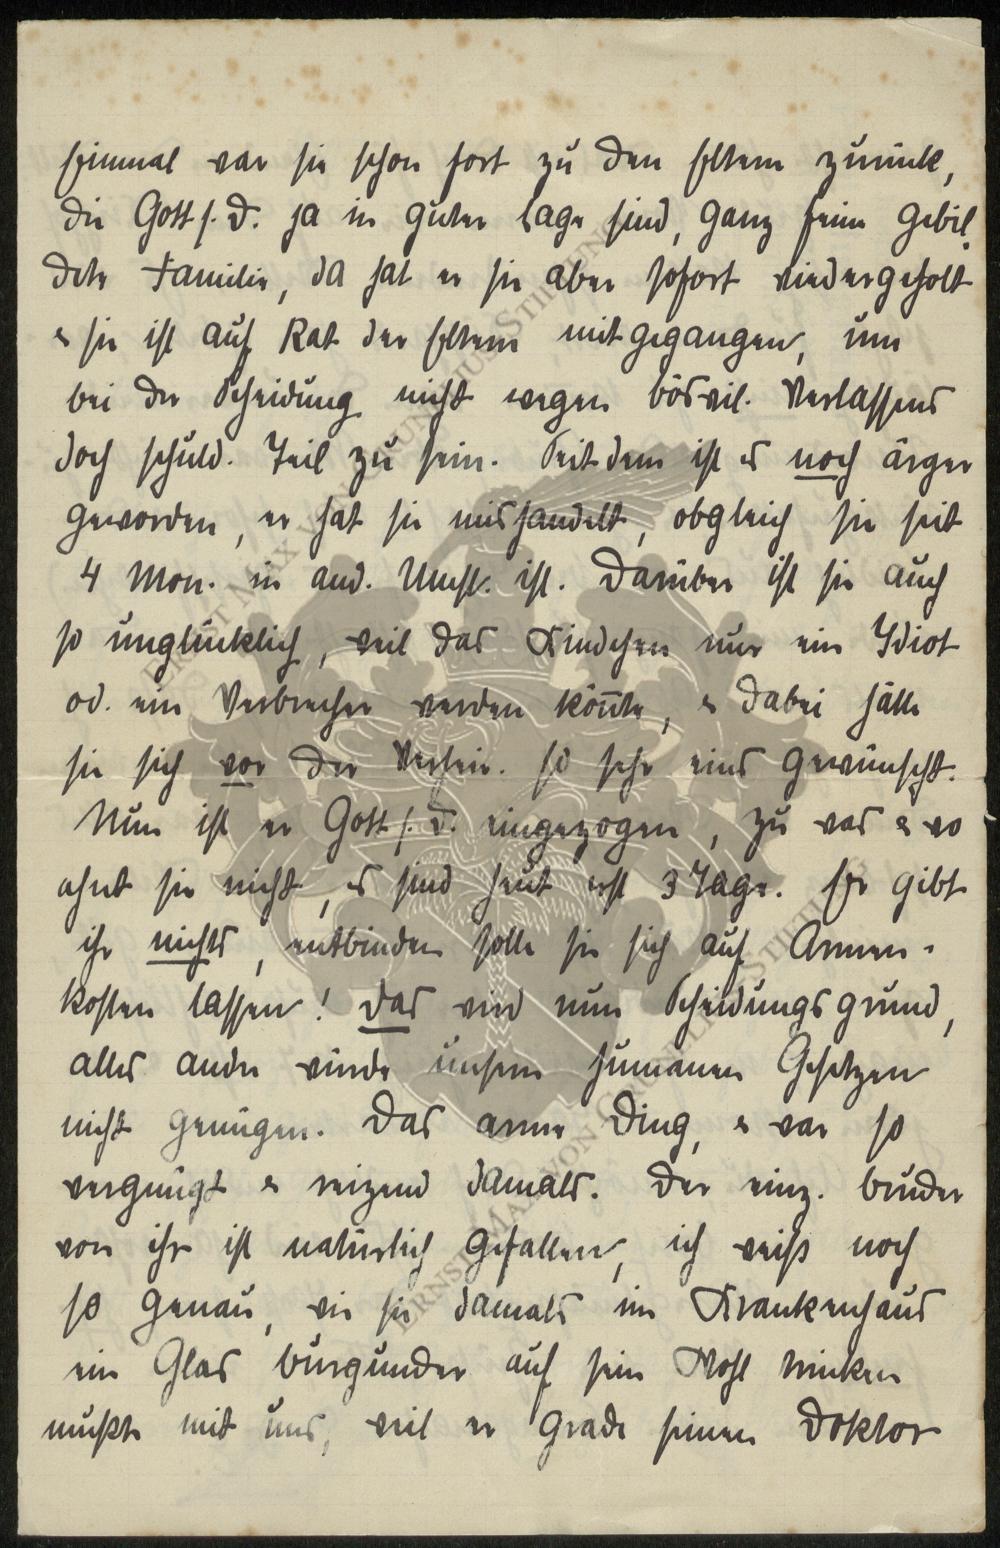 Einmal war sie schon fort zu den Eltern zurück,
die Gott s. D. ja in guter Lage sind, ganz feine gebil-
dete Familie, da hat er sie aber sofort wiedergeholt
& sie ist auf Rat der Eltern mitgegangen, um
bei der Scheidung nicht wegen böswil. Verlassens
doch schuld. Teil zu sein. Seitdem ist es noch ärger
geworden, er hat sie mishandelt, obgleich sie seit
4 Mon. in and. Umst. ist. Darüber ist sie auch
so unglücklich, weil das Kindchen nur ein Idiot
od. ein Verbrecher werden könnte, & dabei hätte
sie sich vor der Verheir. so sehr eins gewünscht.
Nun ist er Gott s. D. eingezogen, zu was & wo
ahnt sie nicht, es sind heut erst 3 Tage. Er gibt
ihr nichts, entbinden solle sie sich auf Armen-
kosten lassen! Das wird nun Scheidungsgrund,
alles andre würde unsern humanen Gesetzen
nicht genügen. Das arme Ding, & war so
vergnügt & reizend damals. Der einz. Bruder
von ihr ist natürlich gefallen, ich weiß noch
so genau, wie sie damals im Krankenhaus
ein Glas Burgunder auf sein Wohl trinken
mußte mit uns, weil er grade seinen Doktor
ERNST MAX VON GRUNELIUS-STIFTUNG
ERNST MAX VON GRUNELIUS-STIFTUNG